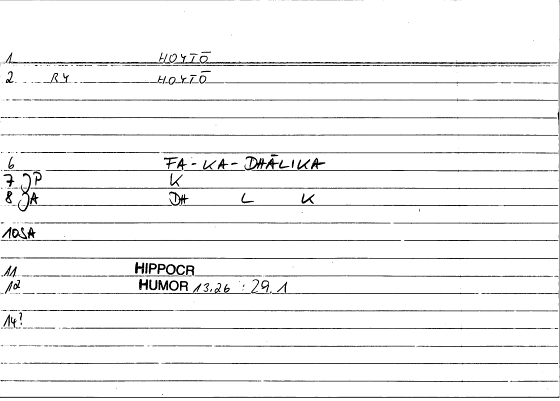 1 HOYTŌ
2 RY HOYTŌ
6 FA-KA-DHĀLIKA
7 P̄ K
8 A DH L K
10SA
11 HIPPOCR
12 HUMOR 13.26 : 29.1
14?